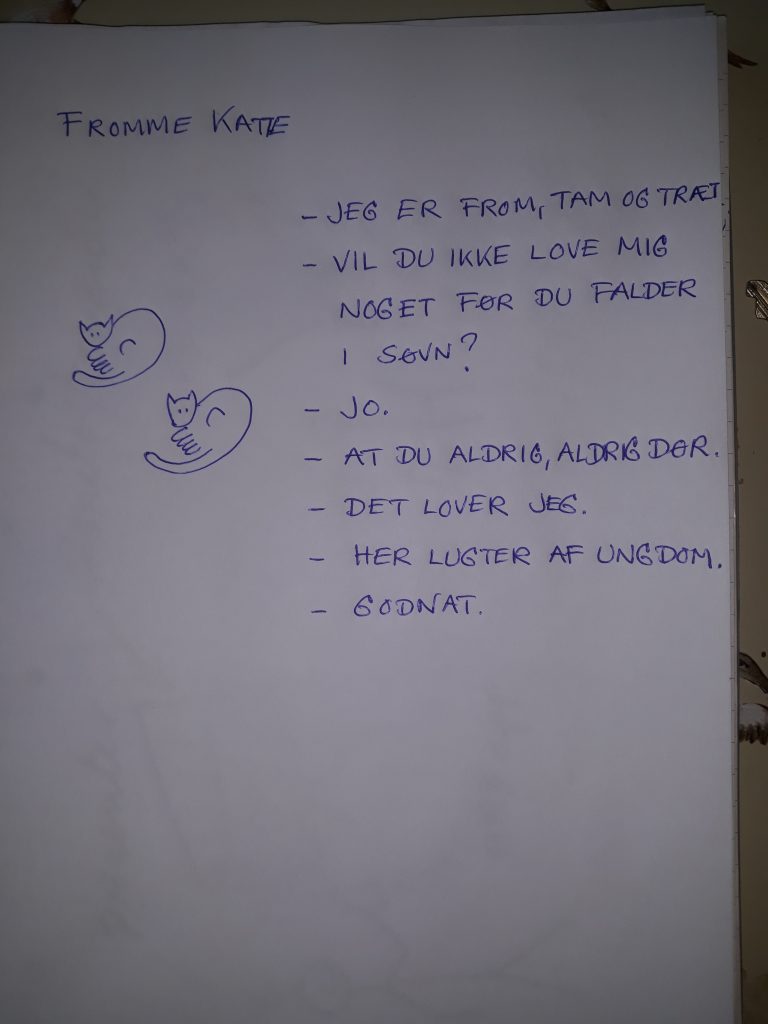 FROMME KATTE
- JEG ER FROM, TAM OG TRÆT
- VIL DU IKKE LOVE MIG
NOGET FØR DU FALDER
I SØVN?
- JO.
- AT DU ALDRIG, ALDRIG DØR.
- DET LOVER JEG.
- HER LUGTER AF UNGDOM.
- GODNAT.